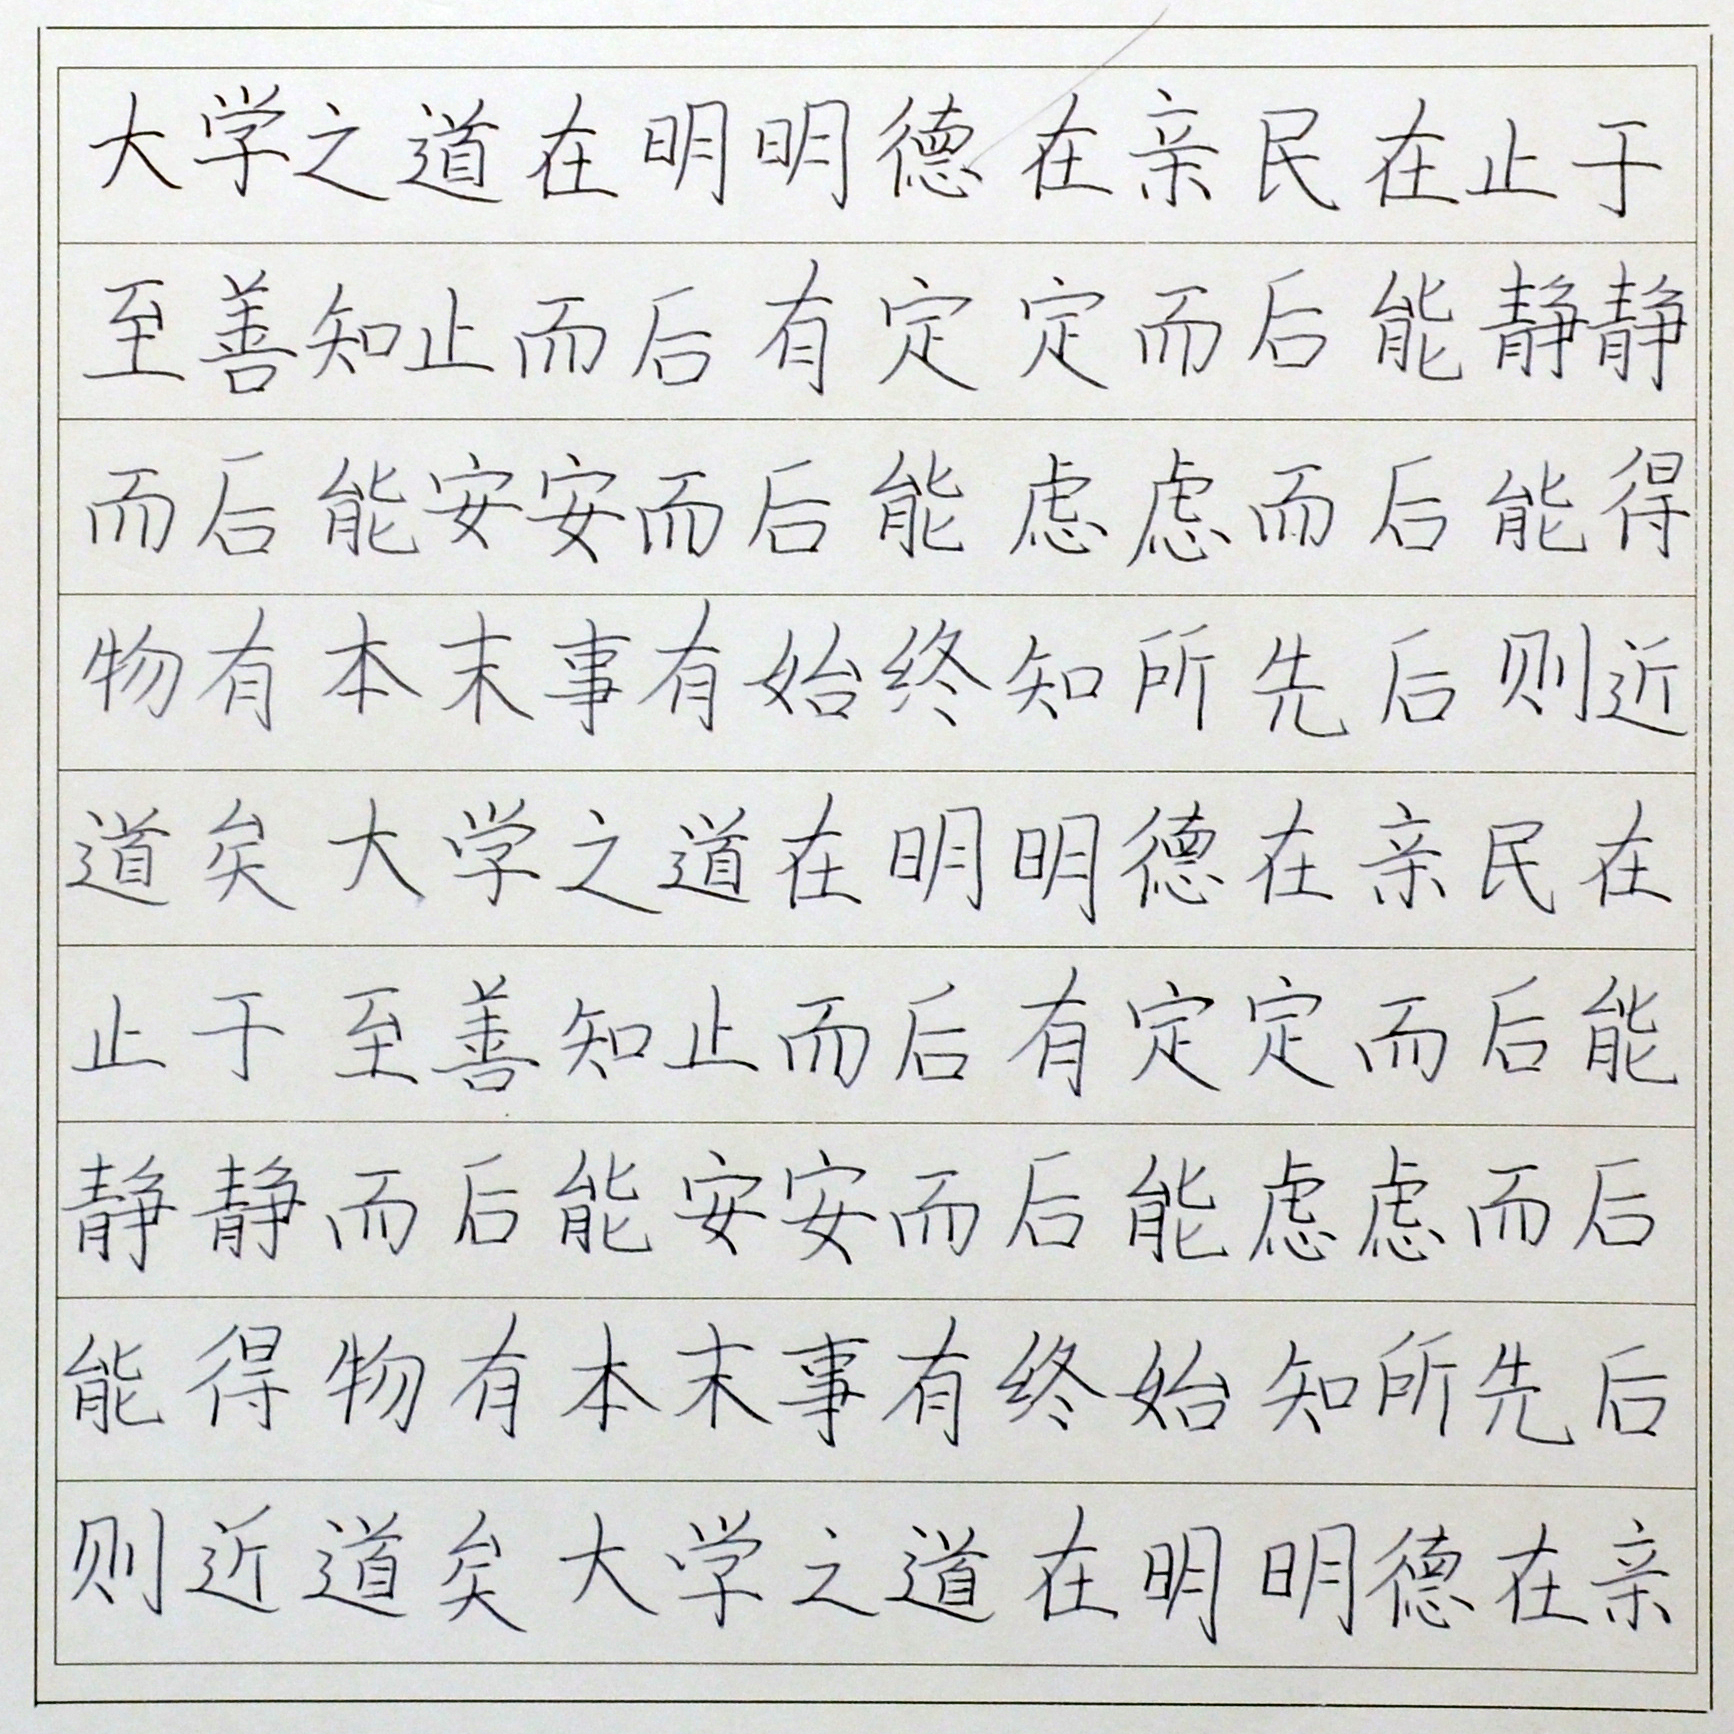 大学之道在明明德在亲民在止于
至善知止而后有定定而后能静静
而后能安安而后能虑虑而后能得
物有本末事有始终知所先后则近
道矣大学之道在明明德在亲民在
止于至善知止而后有定定而后能
静静而后能安安而后能虑虑而后
能得物有本末事有终始知所先后
则近道矣大学之道在明明德在亲